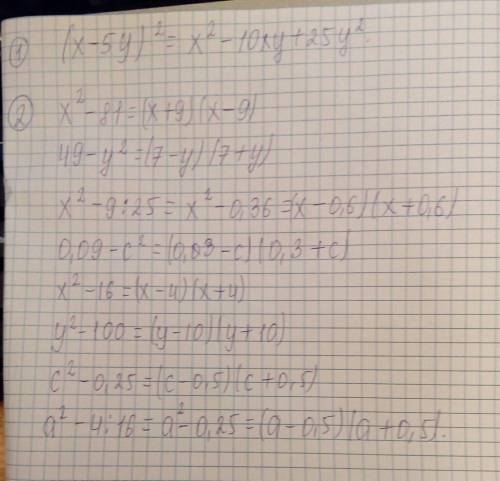 ① (x-5y)² = x² - 10xy + 25y².
② x² - 81 = (x+9)(x-9)
49 - y² = (7-y)(7+y)
x² - 9:25 = x² - 0,36 = (x-0,6)(x+0,6)
0,09 - c² = (0,03-c)(0,3+c)
x² - 16 = (x-4)(x+4)
y² - 100 = (y-10)(y+10)
c² - 0,25 = (c-0,5)(c+0,5)
a² - 4:16 = a² - 0,25 = (a-0,5)(a+0,5).